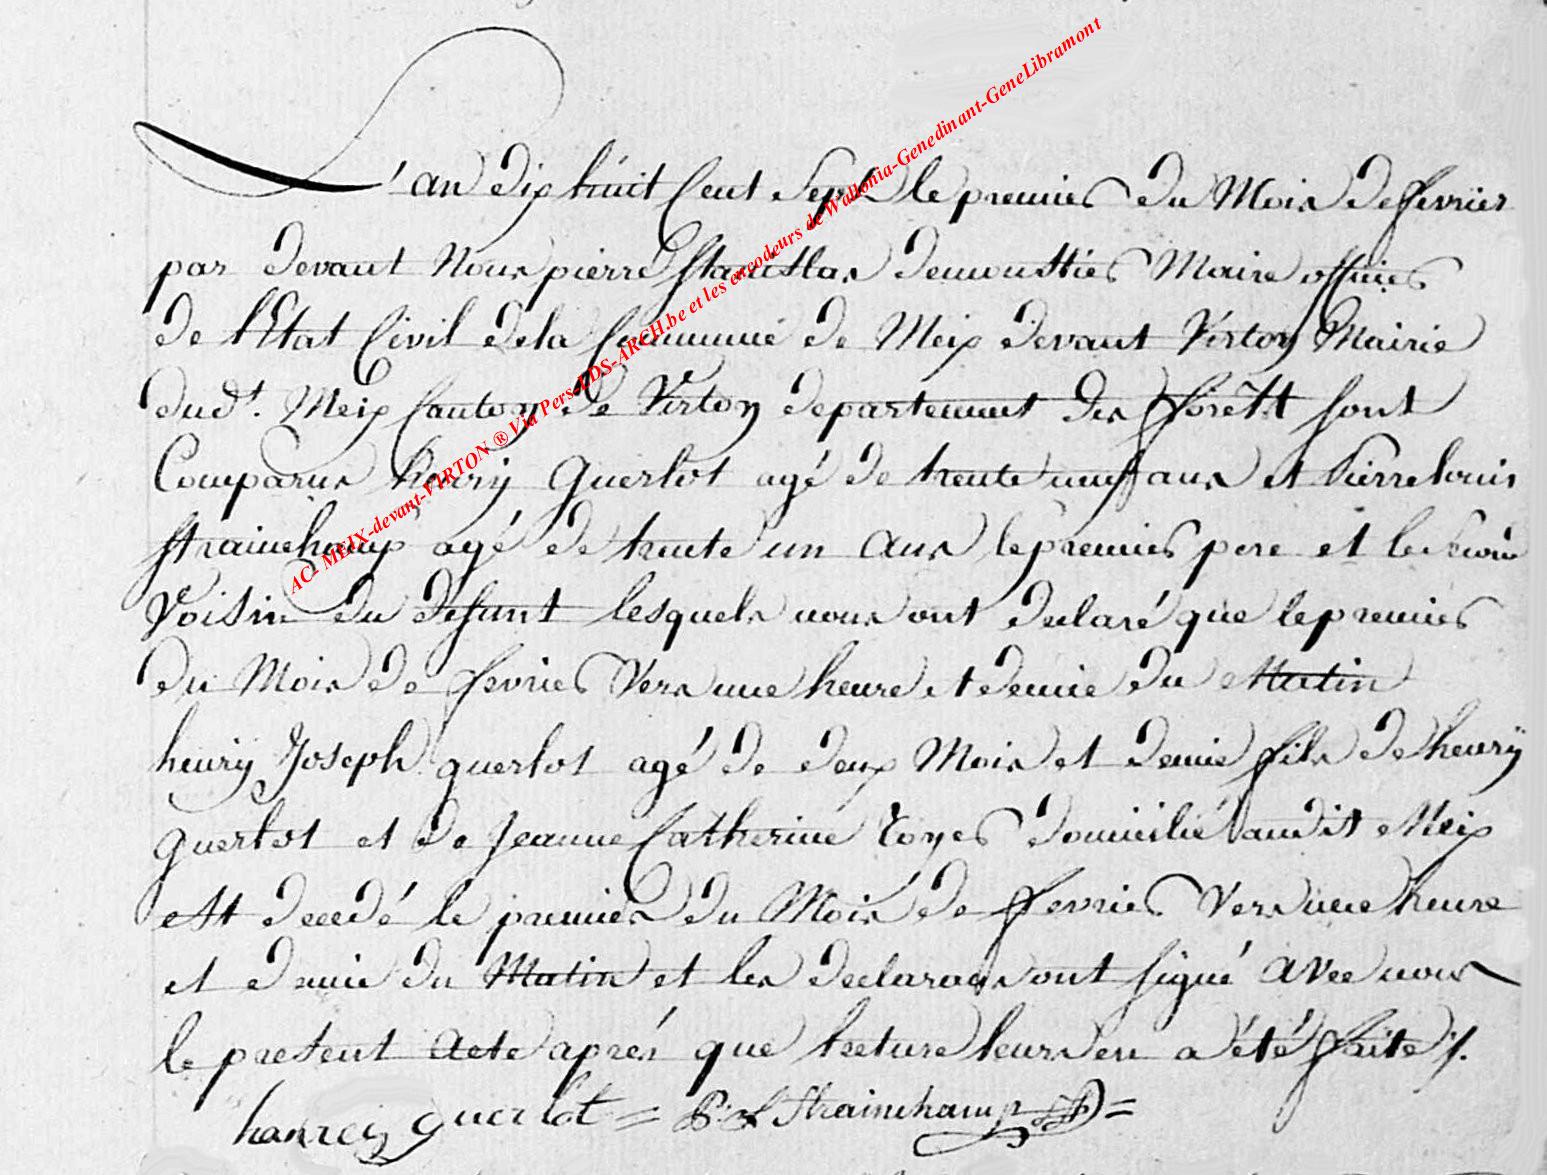 L'an dix huit Cent Sept le premier du Mois de fevrier
par devant Nous pierre Stanislas demoustier Maire officier
de l'Etat Civil dela Commune de Meix devant Virton Mairie
dud.t Meix Canton de Virton departement des forêtt sont
Comparus henry Guerlot agé de trente neuf ans et Pierre louis
Strainchamp agé de trente un ans le premier pere et le
Voisin du defunt lesquels nous ont declaré que le premier
du Mois de fevrier Vers une heure et demie du Matin
henry Joseph guerlot agé de deux Mois et demie fils de henrÿ
guerlot et de Jeanne Catherine Toyer domicilié audit Meix
est decedé le premier du Mois de fevrier Vers une heure
et demie du Matin et les declarans ont signé avec nous
le present acte aprés que lecture leurs en a été faite ./.
hanrey guerlot = P. L Strainchamp =
AC- MEIX-devant-VIRTON ® Via Pers-LDS-ARCH.be et les encodeurs de Wallonia-Genedinant-GeneLibramont